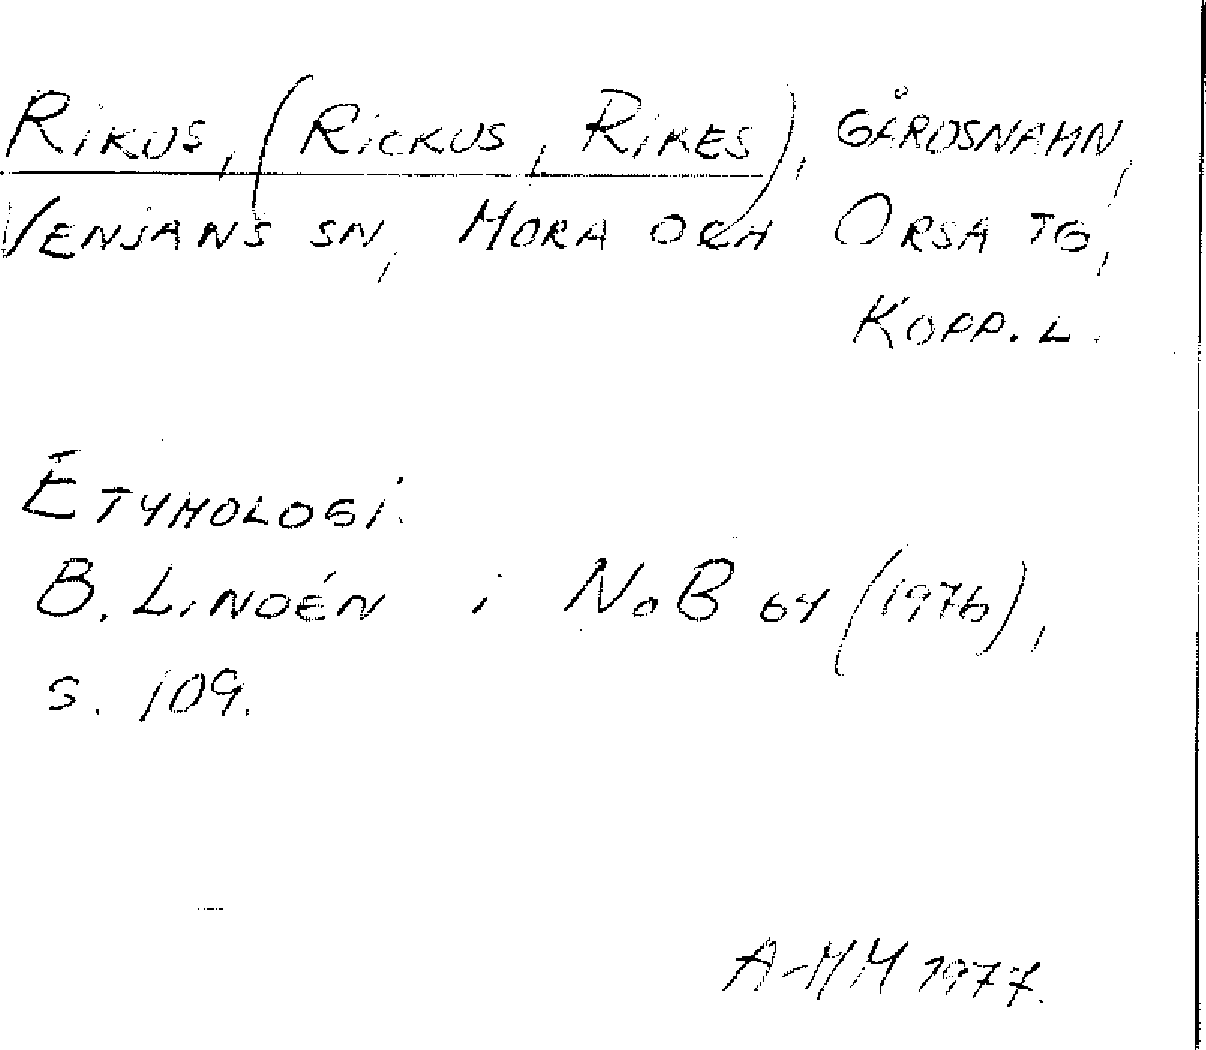 RIKUS, (RICKUS, RIKES), GÅRDSNAMN,
VENJANS SN, MORA OCH ORSA TG,
KOPP. L.
ETYMOLOGI:
B. LINDÉN i NoB 64 (1976),
S. 109.
A-MM 1977.